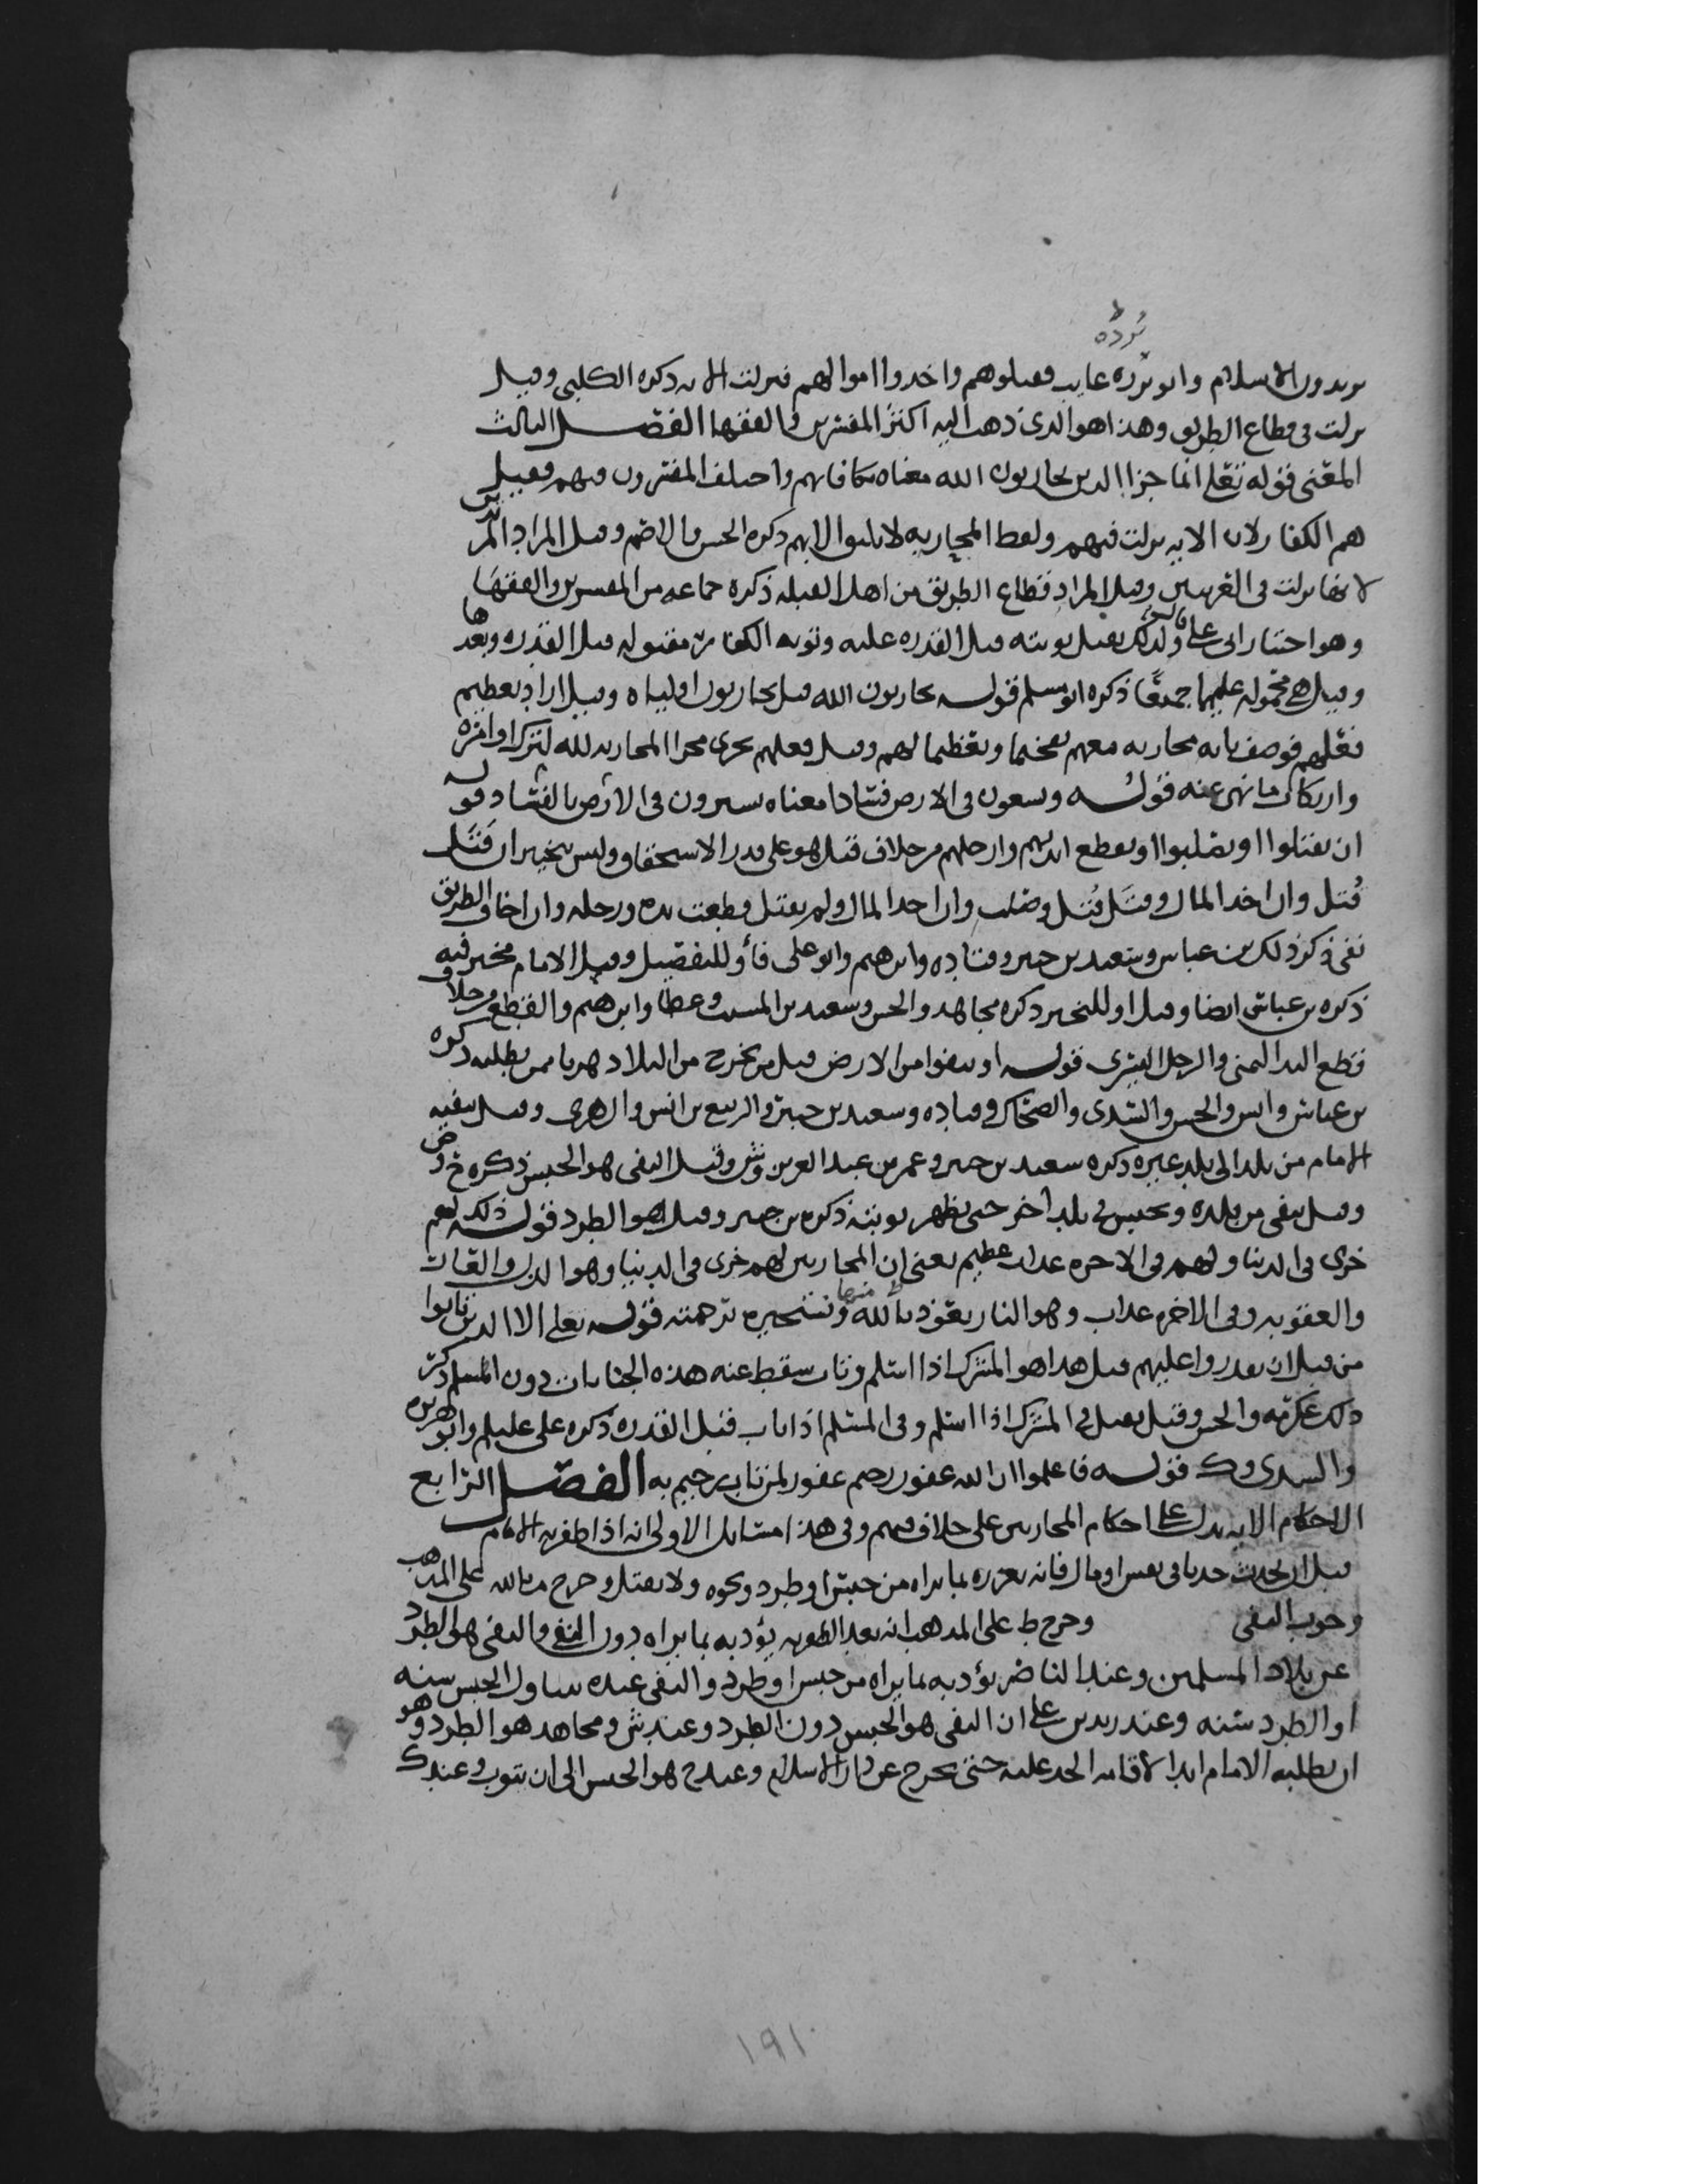 بُرده
يريدون الاسلام وابو برده غايب فقتلوهم واخذوا اموالهم فنزلت الايه ذكره الكلبي وقيل
نزلت في قطاع الطريق وهذا هو الذي ذهب اليه اكثر المفسرين والفقها الفصل الثالث
المعنى قوله تعلى انما جزا الذين يحاربون الله معناه مكافاتهم واختلف المفسرون فيهم فقيل
هم الكفار لان الايه نزلت فيهم ولفظ المحاربه لا يليق الا بهم ذكره الحسن والاصم وقيل المراد المرتدين
لانها نزلت في العرنيين وقيل المراد قطاع الطريق من اهل القبله ذكره جماعه من المفسرين والفقها
وهو اختيار ابي علي قال ولذلك تقبل توبته قبل القدره عليه وتوبه الكفار مقبوله قبل القدره وبعدها
وقيل هي محموله عليهما جميعًا ذكره ابو مسلم قوله يحاربون الله قيل يحاربون اولياه وقيل اراد تعظيم
فعلهم فوصف بانه محاربه معهم تفخيما وتعظيما لهم وقيل فعلهم يجري مجرا المحاربه لله لترك اوامره
وارتكاب ما نهى عنه قوله ويسعون في الارض فسادا معناه يسيرون في الارض بالفساد قوله
ان يقتلوا او يصلبوا او تقطع ايديهم وارجلهم من خلاف قيل هو على قدر الاستحقاق وليس بتخيير ان قَتَل
قُتل وان اخذ المال وقتَل قُتل وصلب وان اخذ المال ولم يقتل قطعت يده ورجله وان اخاف الطريق
نفي ذكر ذلك بن عباس وسعيد بن جبير وقتاده وابرهيم وابو علي فأو للتفصيل وقيل الامام مخير فيه
ذكره بن عباس ايضا وقيل او للتخيير ذكره مجاهد والحسن وسعيد بن المسيب وعطا وابرهيم والقطع من خلاف
قطع اليد اليمنى والرجل اليسرى قوله او ينفوا من الارض قيل من يخرج من البلاد هربا ممن يطلبه ذكره
بن عباس وانس والحسن والسدي والضحاك وقتاده وسعيد بن جبير والربيع بن انس والزهري وقيل ينفيه
الامام من بلد الى بلد غيره ذكره سعيد بن جبير وعمر بن عبد العزيز وش وقيل النفي هو الحبس ذكره ح وص
وقيل ينفى من بلده ويحبس في بلد آخر حتى تظهر توبته ذكره بن جبير وقيل هو الطرد قوله ذلك لهم
خزي في الدنيا ولهم في الاخره عذاب عظيم يعني ان المحاربين لهم خزي في الدنيا وهو الذل والعذاب
والعقوبه وفي الاخره عذاب وهو النار نعوذ بالله منها ونستجيره برحمته قوله تعلى الا الذين تابوا
من قبل ان تقدروا عليهم قيل هذا هو المشرك اذا اسلم وتاب سقط عنه هذه الجنايات دون المسلم ذكر
ذلك عكرمه والحسن وقيل تقبل في المشرك اذا اسلم وفي المسلم اذا تاب قبل القدره ذكره علي عليلم وابو هريره
والسدي وك قوله فاعلموا ان الله غفور رحيم غفور لمن تاب رحيم به الفصل الرابع
الاحكام الايه تدل على احكام المحاربين على خلاف فيهم وفي هذا مسايل الاولى انه اذا ظفر به الامام
قبل ان يحدث حدثا في نفس او مال فانه يعزره بما يراه من حبس او طرد ونحوه ولا يقتل وخرج م بالله على المذهب
وجوب النفي وخرج ط على المذهب انه بعد الظفر به يؤدبه بما يراه دون النفي والنفي هو الطرد
عن بلاد المسلمين وعند الناصر يؤدبه بما يراه من حبس او طرد والنفي عنده يتناول الحبس سنه
او الطرد سنه وعند زيد بن علي ان النفي هو الحبس دون الطرد وعند ش ومجاهد هو الطرد وهو
ان يطلبه الامام ابدا لاقامه الحد عليه حتى يخرج عن دار الاسلام وعند ح هو الحبس الى ان يتوب وعند ك
١٩١